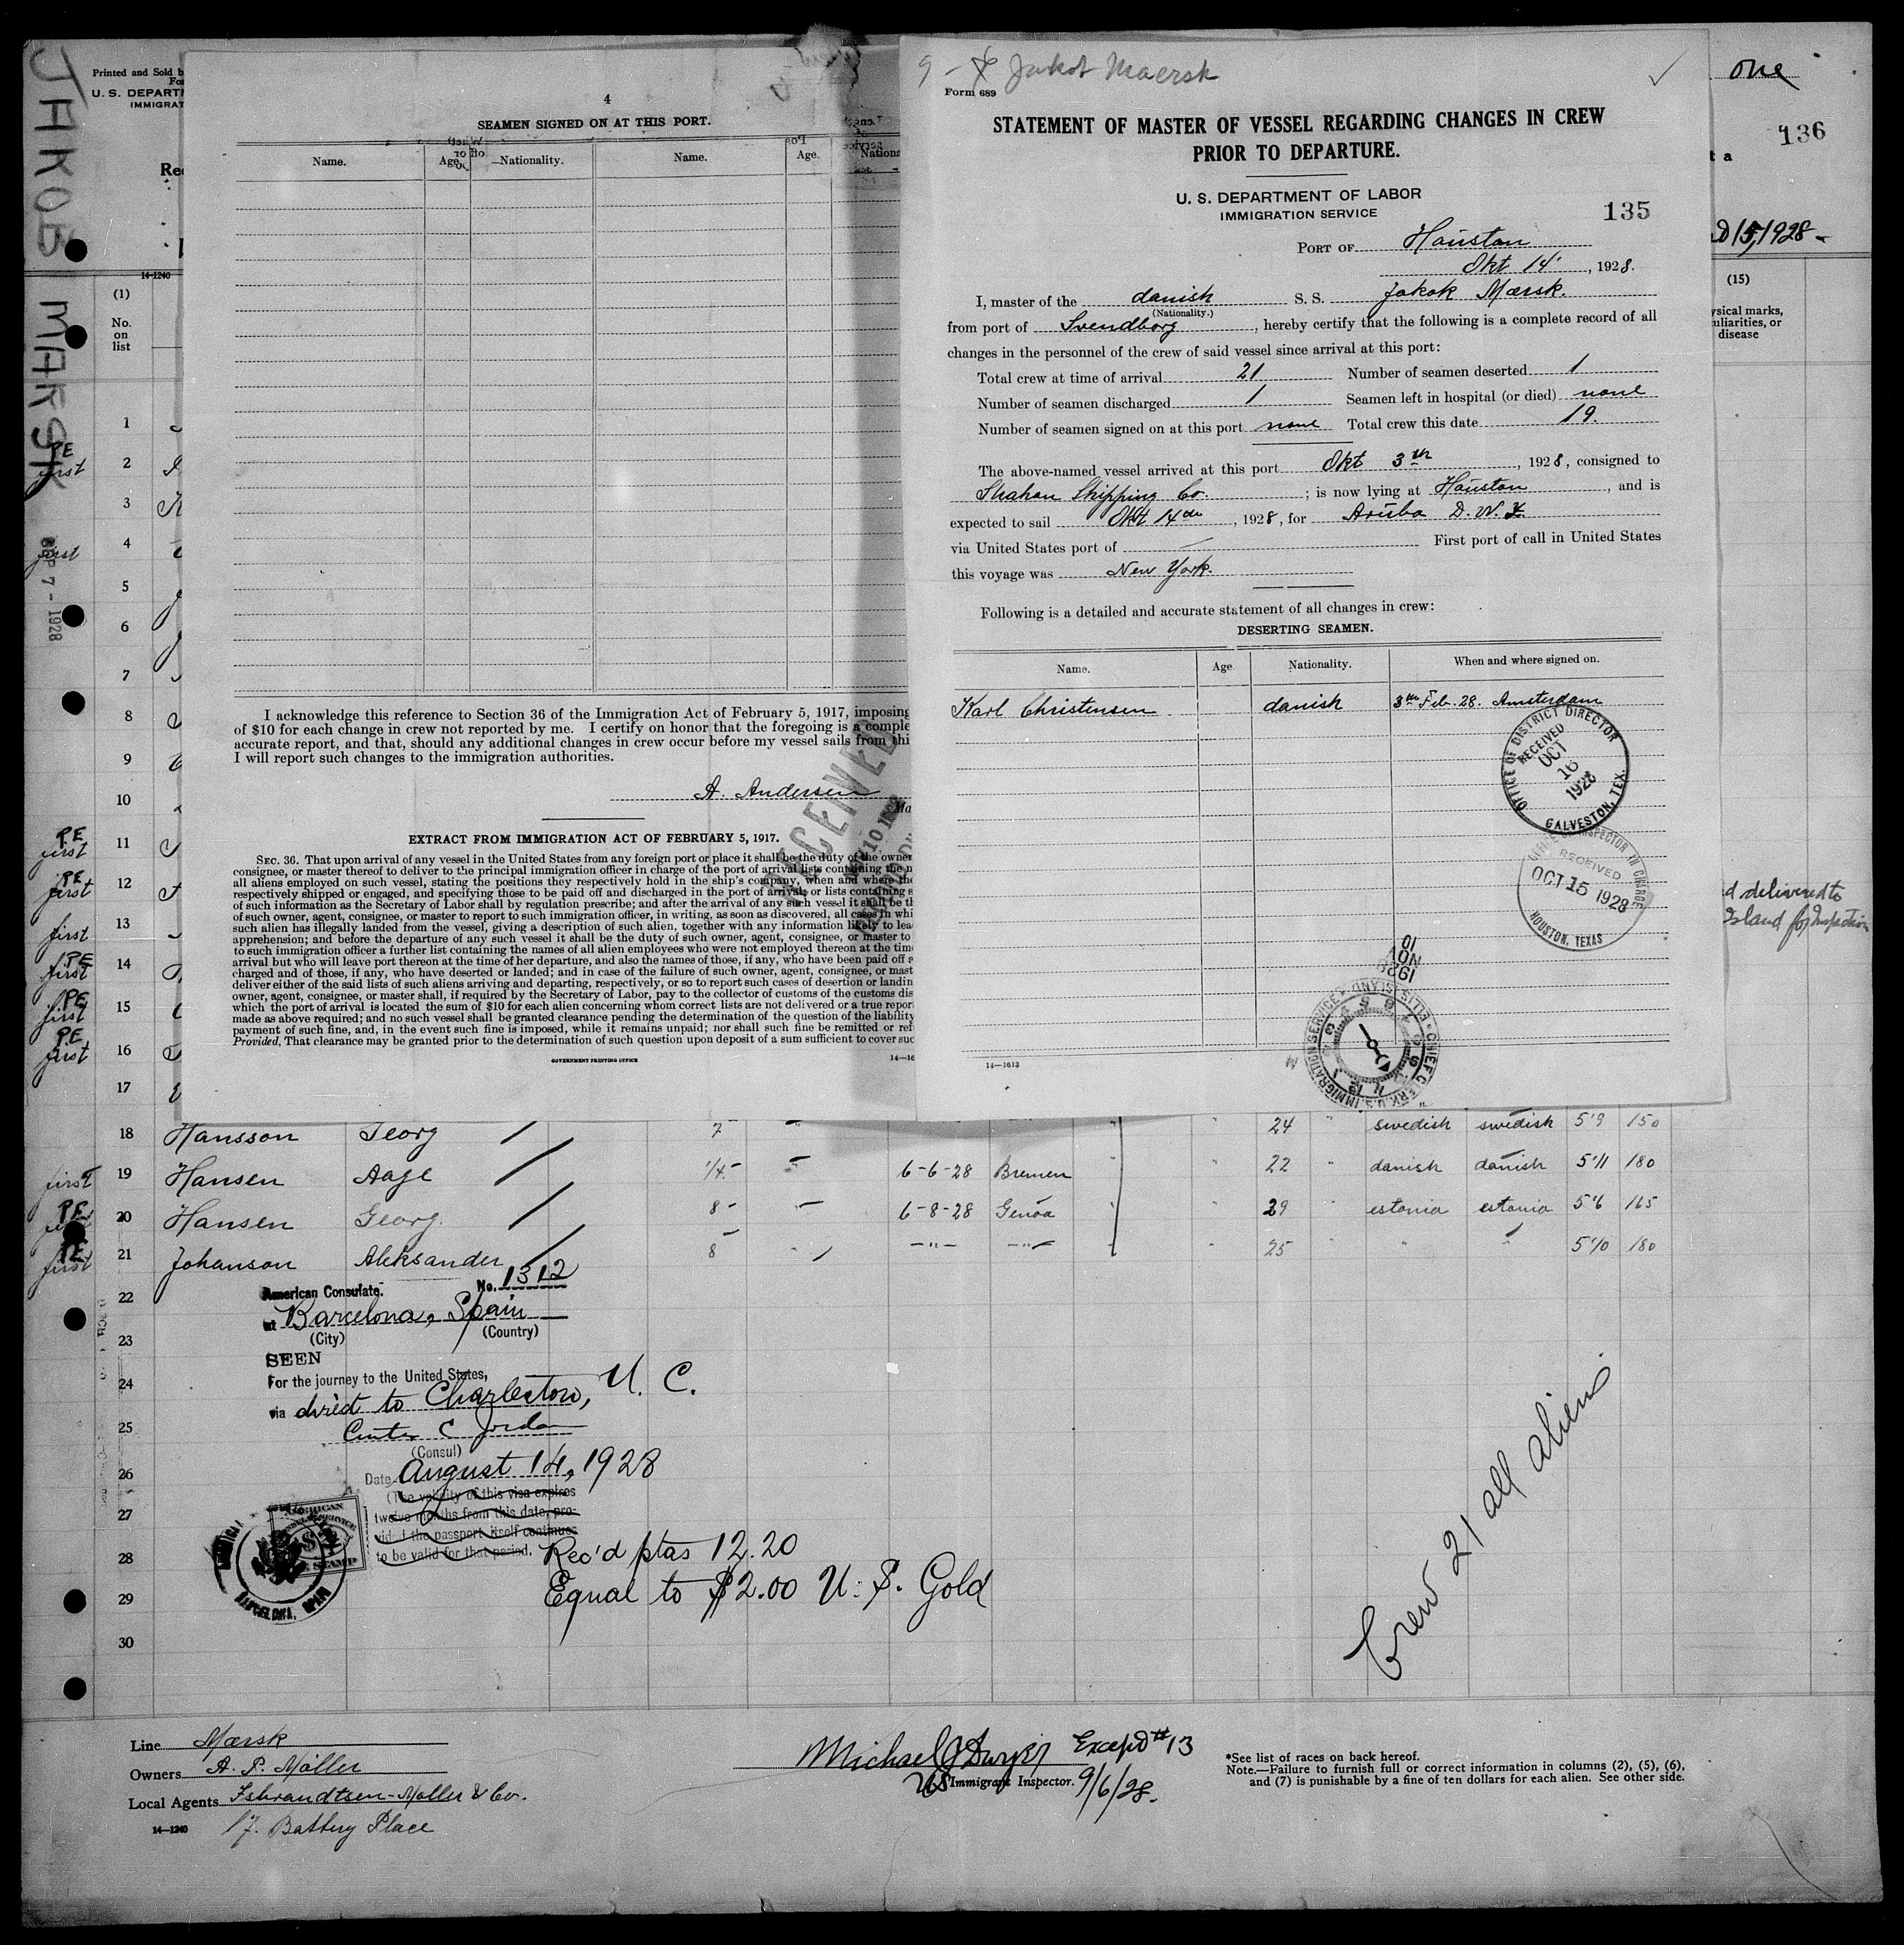 JAKOB MÆRSK
SEP 7 - 1928
Printed and Sold b
For
U. S. DEPARTM
IMMIGRAT
one
136
t a
Rec
d 15, 1928 -
14-1240
(1)
No.
on
list
(15)
ysical marks,
uliarities, or
disease
4
SEAMEN SIGNED ON AT THIS PORT.
Name. Age. Nationality. Name. Age. Nationa
I acknowledge this reference to Section 36 of the Immigration Act of February 5, 1917, imposing
of $10 for each change in crew not reported by me. I certify on honor that the foregoing is a comple
accurate report, and that, should any additional changes in crew occur before my vessel sails from thi
I will report such changes to the immigration authorities.
A. Andersen
Ma
RECEIVED
EXTRACT FROM IMMIGRATION ACT OF FEBRUARY 5, 1917.
SEC. 36. That upon arrival of any vessel in the United States from any foreign port or place it shall be the duty of the owner
consignee, or master thereof to deliver to the principal immigration officer in charge of the port of arrival lists containing the n
all aliens employed on such vessel, stating the positions they respectively hold in the ship's company, when and where the
respectively shipped or engaged, and specifying those to be paid off and discharged in the port of arrival; or lists containing s
of such information as the Secretary of Labor shall by regulation prescribe; and after the arrival of any such vessel it shall be th
of such owner, agent, consignee, or master to report to such immigration officer, in writing, as soon as discovered, all cases in whi
such alien has illegally landed from the vessel, giving a description of such alien, together with any information likely to lea
apprehension; and before the departure of any such vessel it shall be the duty of such owner, agent, consignee, or master to
to such immigration officer a further list containing the names of all alien employees who were not employed thereon at the time
arrival but who will leave port thereon at the time of her departure, and also the names of those, if any, who have been paid off a
charged and of those, if any, who have deserted or landed; and in case of the failure of such owner, agent, consignee, or mast
deliver either of the said lists of such aliens arriving and departing, respectively, or so to report such cases of desertion or landin
owner, agent, consignee, or master shall, if required by the Secretary of Labor, pay to the collector of customs of the customs dis
which the port of arrival is located the sum of $10 for each alien concerning whom correct lists are not delivered or a true repor
made as above required; and no such vessel shall be granted clearance pending the determination of the question of the liability
payment of such fine, and, in the event such fine is imposed, while it remains unpaid; nor shall such fine be remitted or ref
Provided, That clearance may be granted prior to the determination of such question upon deposit of a sum sufficient to cover suc
GOVERNMENT PRINTING OFFICE
14-16
9 - Jakob Maersk
Form 689
STATEMENT OF MASTER OF VESSEL REGARDING CHANGES IN CREW
PRIOR TO DEPARTURE.
U. S. DEPARTMENT OF LABOR
IMMIGRATION SERVICE
135
PORT OF Houston
Okt 14', 1928.
I, master of the danish S. S. Jakob Mærsk.
(Nationality.)
from port of Svendborg, hereby certify that the following is a complete record of all
changes in the personnel of the crew of said vessel since arrival at this port:
Total crew at time of arrival 21 Number of seamen deserted 1
Number of seamen discharged 1 Seamen left in hospital (or died) none
Number of seamen signed on at this port none Total crew this date 19.
The above-named vessel arrived at this port Okt 3th, 1928, consigned to
Strahan Shipping Co.; is now lying at Houston, and is
expected to sail Okt 14de, 1928, for Aruba D. W. I.
via United States port of — First port of call in United States
this voyage was New York.
Following is a detailed and accurate statement of all changes in crew:
DESERTING SEAMEN.
Name. Age. Nationality. When and where signed on.
Karl Christensen danish 3th Feb. 28. Amsterdam
OFFICE OF DISTRICT DIRECTOR
RECEIVED
OCT
16
1928
GALVESTON, TEX.
OFFICE OF INSPECTOR IN CHARGE
RECEIVED
OCT 15 1928
HOUSTON, TEXAS
1928
NOV
10
CHIEF CLERK, U.S. IMMIGRATION SERVICE - ELLIS ISLAND
14-1613
d delivered to
Island for Inspection
1
PE first 2
3
first 4
5
6
7
8
9
10
PE first 11
PE first 12
first 13
PE first 14
PE first 15
PE first 16
17
18 Hansson Georg 7 24 " swedish swedish 5'9 150
first 19 Hansen Aage 1/4 - 6-6-28 Bremen 22 " danish danish 5'11 180
PE first 20 Hansen Georg. 8 - 6-8-28 Genoa 29 " estonia estonia 5'6 165
PE first 21 Johanson Aleksander 8 -"- -"- 25 " " " 5'10 180
22
23
24
25
26
27
28
29
30
American Consulate. No. 1312
at Barcelona, Spain
(City) (Country)
SEEN
For the journey to the United States,
via direct to Charleston,
(Consul)
Date August 14, 1928
(The validity of this visa expires
twelve months from this date, pro-
vided the passport itself continues
to be valid for that period.
AMERICAN
BARCELONA, SPAIN
Rec'd ptas 12.20
Equal to $2.00 U.S. Gold
Crew 21 all aliens
Line Mærsk
Owners A. P. Möller
Local Agents Isbrandtsen-Moller & Co.
14-1240 17. Battery Place
Michael J Dwyer Except #13
US Immigrant Inspector. 9/6/28.
*See list of races on back hereof.
Note.—Failure to furnish full or correct information in columns (2), (5), (6),
and (7) is punishable by a fine of ten dollars for each alien. See other side.